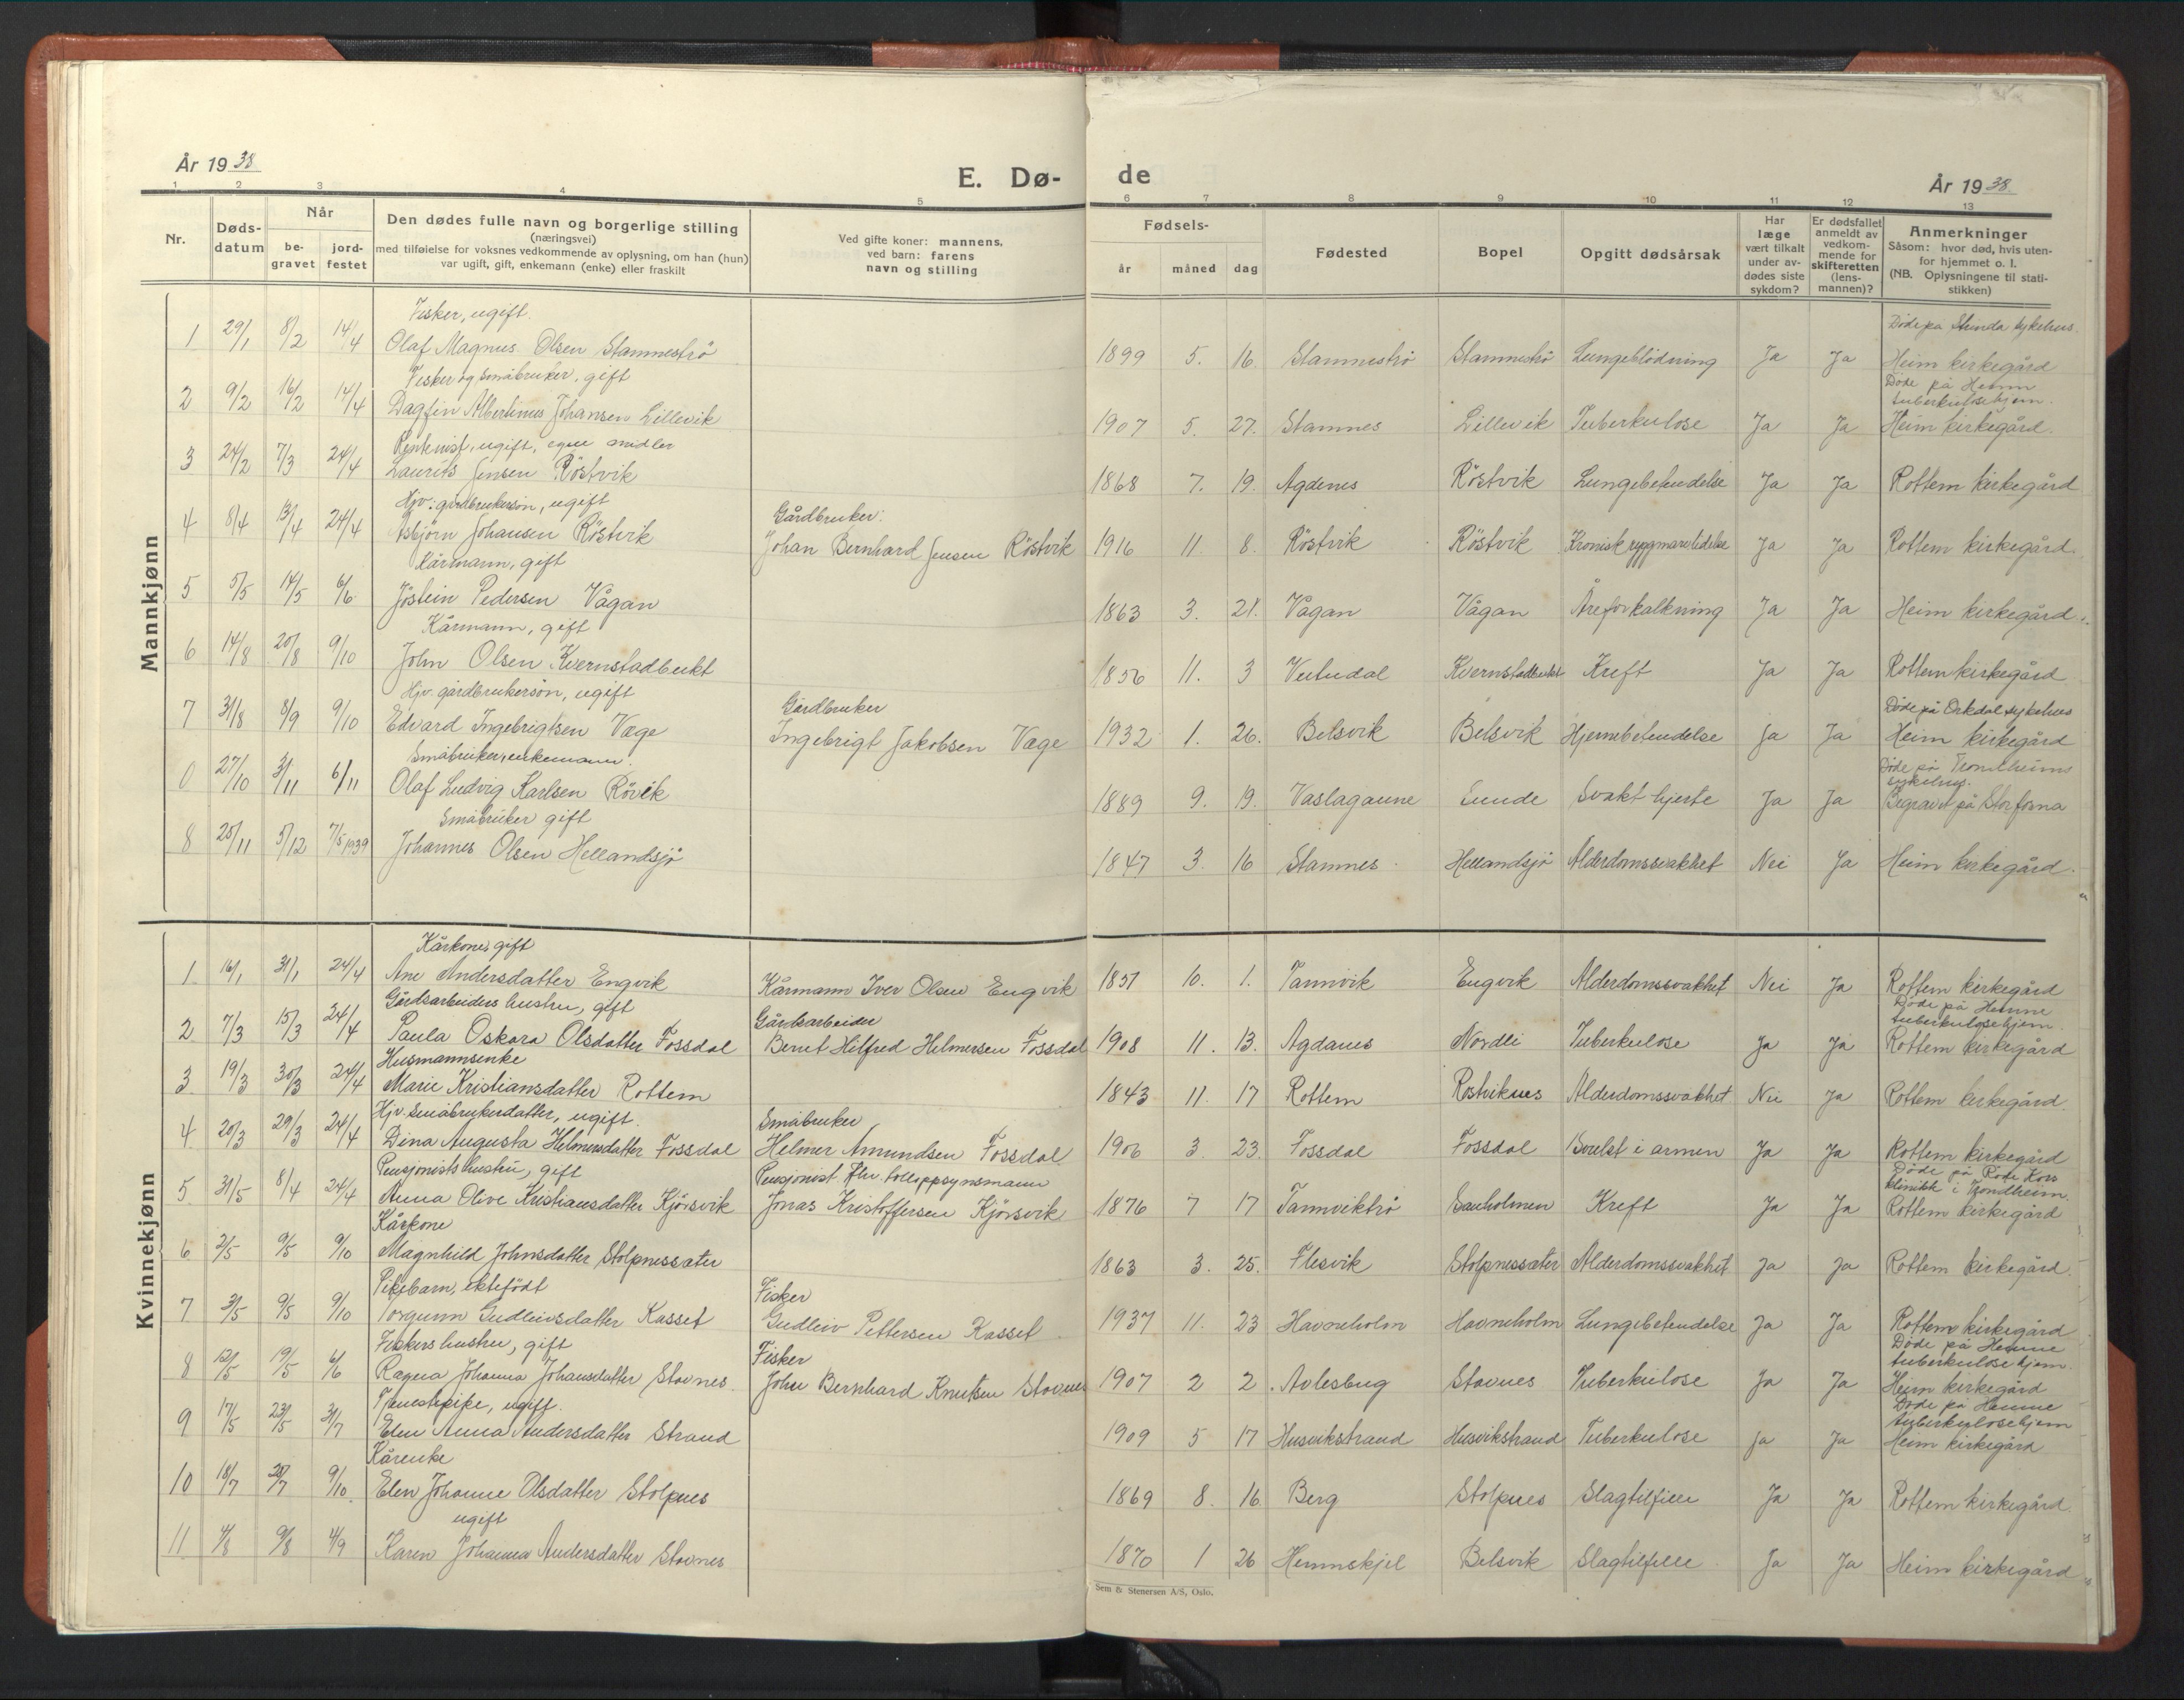 År 1938
E. Dø-
de
År 1938
1 2 3 4 5 6 7 8 9 10 11 12 13
Nr.
Døds-
datum
Når
be-
gravet
jord-
festet
Den dødes fulle navn og borgerlige stilling
(næringsvei)
med tilføielse for voksnes vedkommende av oplysning, om han (hun)
var ugift, gift, enkemann (enke) eller fraskilt
Ved gifte koner: mannens,
ved barn: farens
navn og stilling
Fødsels-
år måned dag
Fødested
Bopel
Opgitt dødsårsak
Har
læge
vært tilkalt
under av-
dødes siste
sykdom?
Er dødsfallet
anmeldt av
vedkom-
mende for
skifteretten
(lens-
mannen)?
Anmerkninger
Såsom: hvor død, hvis uten-
for hjemmet o. l.
(NB. Oplysningene til stati-
stikken)
Mannkjønn
Fisker, ugift. Døde på Strinda sykehus.
1 29/1 8/2 14/4 Olaf Magnus Olsen Stamnestrø 1899 5. 16. Stamnestrø Stamnestrø Lungeblødning Ja Ja Heim kirkegård
Fisker og småbruker, gift Døde på Hemne
tuberkulosehjem.
2 9/2 16/2 14/4 Dagfin Albertinus Johansen Lillevik 1907 5. 27. Stamnes Lillevik Tuberkulose Ja Ja Heim kirkegård.
Rentenist, ugift, egne midler
3 24/2 7/3 24/4 Laurits Jensen Röstvik 1868 7. 19. Agdenes Röstvik Lungebetendelse Ja Ja Rottem kirkegård
Hjv. gårdbrukersön, ugift Gårdbruker:
4 8/4 13/4 24/4 Asbjörn Johansen Röstvik Johan Bernhard Jensen Röstvik 1916 11. 8. Röstvik Röstvik Kronisk ryggmarvlidelse Ja Ja Rottem kirkegård.
Kårmann, gift
5 5/5 14/5 6/6 Jöstein Pedersen Vågan 1863 3. 21. Vågan Vågan Åreforkalkning Ja Ja Heim kirkegård.
Kårmann, gift
6 14/8 20/8 9/10 John Olsen Kvernstadbukt 1856 11. 3 Kvernstadbukt Kreft Ja Ja Rottem kirkegård
Hjv. gårdbrukersön, ugift Gårdbruker Døde på Orkdal sykehus
7 31/8 8/9 9/10 Edvard Ingebrigtsen Væge Ingebrigt Jakobsen Væge 1932 1. 26. Belsvik Belsvik Hjernebetendelse Ja Ja Heim kirkegård
Småbruker, enkemann. Døde på Trondheims
sykehus.
0 27/10 3/11 6/11 Olaf Ludvig Karlsen Rövik 1889 9. 19. Vaslagaune Sunde Svakt hjerte Ja Ja Begravet på Storfosna
Småbruker gift
8 25/11 5/12 7/5 1939 Johannes Olsen Hellandsjö 1847 3. 16 Stamnes Hellandsjö Alderdomssvakhet Nei Ja Heim kirkegård.
Kvinnekjønn
Kårkone, gift
1 16/1 31/1 24/4 Ane Andersdatter Engvik Kårmann Iver Olsen Engvik 1851 10. 1. Tannvik Engvik Alderdomssvakhet Nei Ja Rottem kirkegård
Gårdsarbeiders hustru, gift Gårdsarbeider Døde på Hemne
tuberkulosehjem.
2 7/3 15/3 24/4 Paula Oskara Olsdatter Fossdal Bernt Hilfred Helmersen Fossdal 1908 11. 13. Agdanes Nordli Tuberkulose Ja Ja Rottem kirkegård
Husmannsenke
3 19/3 30/3 24/4 Marie Kristiansdatter Rottem 1843 11. 17 Rottem Röstviknes Alderdomssvakhet Nei Ja Rottem kirkegård.
Hjv. småbrukerdatter, ugift. Småbruker
4 20/3 29/3 24/4 Dina Augusta Helmersdatter Fossdal Helmer Amundsen Fossdal 1906 3 23. Fossdal Fossdal Svulst i armen Ja Ja Rottem kirkegård
Pensjonists hustru, gift Pensjonist, fhv. tolloppsynsmann Døde på Röde Kors
klinikk i Trondheim.
5 31/5 8/4 24/4 Anna Olive Kristiansdatter Kjörsvik Jonas Kristoffersen Kjörsvik 1876 7 17 Tannviktrø Sauholmen Kreft Ja Ja Rottem kirkegård
Kårkone
6 2/5 9/5 9/10 Magnhild Johnsdatter Stolpnessæter 1863 3. 25. Flesvik Stolpnessæter Alderdomssvakhet Ja Ja Rottem kirkegård.
Pikebarn, ektefödt Fisker
7 3/5 9/5 9/10 Torgunn Gudleivsdatter Kasset Gudleiv Pettersen Kasset 1937 11. 23 Havneholm Havneholm Lungebetendelse Ja Ja Rottem kirkegård
Fiskers hustru, gift Fisker Døde på Hemne
tuberkulosehjem.
8 12/5 19/5 6/6 Ragna Johanna Johansdatter Stavnes. John Bernhard Knutsen Stavnes 1907 2 2. Stavnes Tuberkulose Ja Ja Heim kirkegård
Tjenestepike, ugift. Døde på Hemne
tuberkulosehjem
9 17/5 23/5 31/7 Elen Anna Andersdatter Strand 1909 5 17 Husvikstrand Husvikstrand Tuberkulose Ja Ja Heim kirkegård
Kårenke
10 18/7 28/7 9/10. Elen Johanne Olsdatter Stolpnes 1869 8. 16. Berg Stolpnes Slagtilfelle Ja Ja Rottem kirkegård.
ugift
11 4/8 9/8 4/9 Karen Johanna Andersdatter Stavnes 1870 1 26 Hemnskjel Belsvik Slagtilfelle Ja Ja Heim kirkegård
Sem & Stenersen A/S, Oslo.